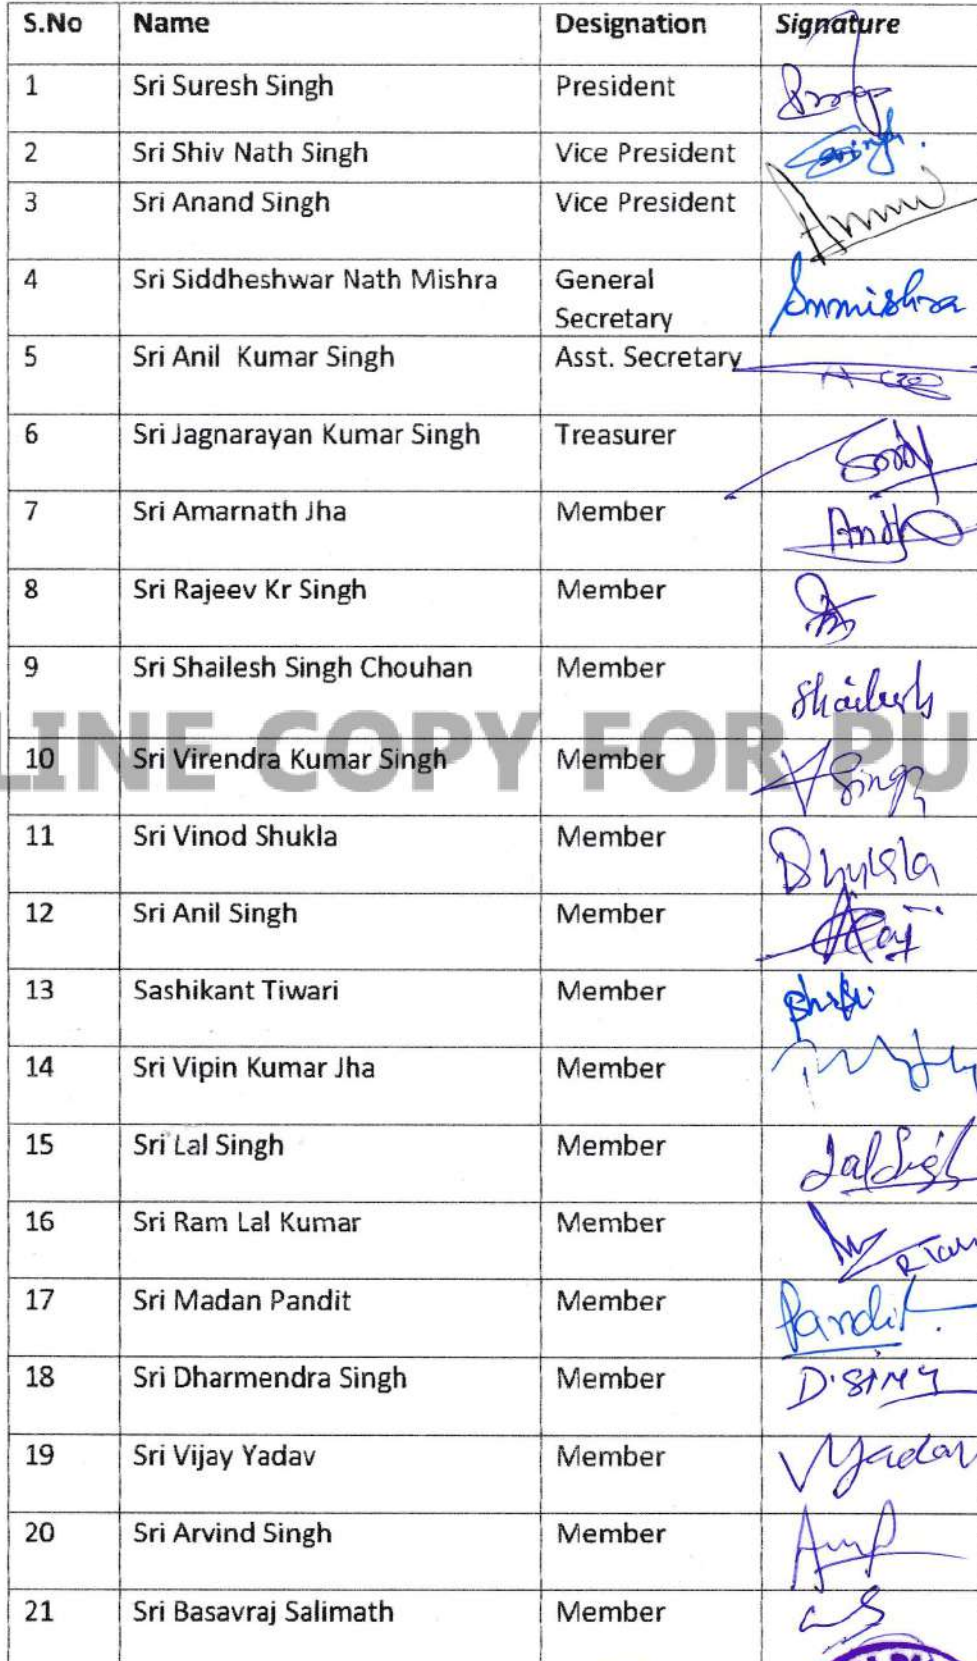 S.No Name Designation Signature
1 Sri Suresh Singh President
2 Sri Shiv Nath Singh Vice President Singh.
3 Sri Anand Singh Vice President
4 Sri Siddheshwar Nath Mishra General Secretary Snmishra
5 Sri Anil Kumar Singh Asst. Secretary
6 Sri Jagnarayan Kumar Singh Treasurer
7 Sri Amarnath Jha Member
8 Sri Rajeev Kr Singh Member
9 Sri Shailesh Singh Chouhan Member Shailesh
LINE COPY FOR PU
10 Sri Virendra Kumar Singh Member V Singh
11 Sri Vinod Shukla Member
12 Sri Anil Singh Member
13 Sashikant Tiwari Member
14 Sri Vipin Kumar Jha Member
15 Sri Lal Singh Member Lal Singh
16 Sri Ram Lal Kumar Member
17 Sri Madan Pandit Member Pandit.
18 Sri Dharmendra Singh Member
19 Sri Vijay Yadav Member V Yadav
20 Sri Arvind Singh Member
21 Sri Basavraj Salimath Member